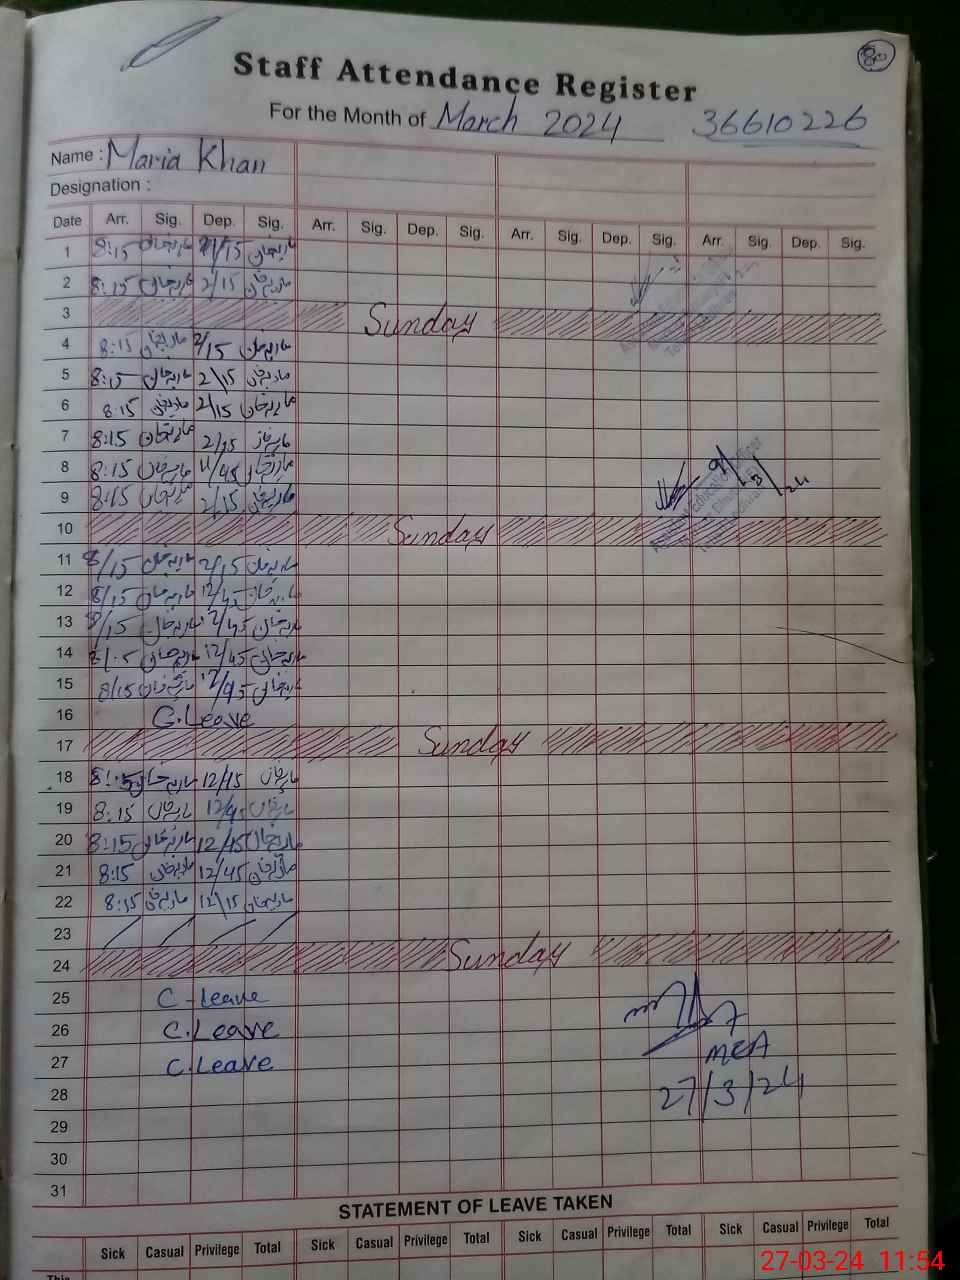 80
Staff Attendance Register
For the Month of March 2024 36610226
Name : Maria Khan
Designation :
Date Arr. Sig. Dep. Sig. Arr. Sig. Dep. Sig. Arr. Sig. Dep. Sig. Arr. Sig. Dep. Sig.
1 8:15 ماریہ خان ماریہ خان
2 8:15 ماریہ خان 2/15 ماریہ خان
3 Sunday
4 8:15 ماریہ خان 2/15 ماریہ خان
5 8:15 ماریہ خان 2/15 ماریہ خان
6 8:15 ماریہ خان 2/15 ماریہ خان
7 8:15 ماریہ خان 2/15 ماریہ خان
8 8:15 ماریہ خان 11/45 ماریہ خان
9 8:15 ماریہ خان 2/15 ماریہ خان
9/3/24
10 Sunday
11 8/15 ماریہ خان 2/15 ماریہ خان
12 8/15 ماریہ خان 12/45 ماریہ خان
13 8/15 ماریہ خان 12/45 ماریہ خان
14 ماریہ خان 12/45 ماریہ خان
15 8/15 ماریہ خان 12/45 ماریہ خان
16 C.Leave
17 Sunday
18 ماریہ خان 12/45 ماریہ خان
19 8:15 ماریہ خان ماریہ خان
20 8:15 ماریہ خان 12/45 ماریہ خان
21 8:15 ماریہ خان 12/45 ماریہ خان
22 8:15 ماریہ خان 12/15 ماریہ خان
23
24 Sunday
25 C-Leave
26 C.Leave
27 C.Leave
MEA
28
27/3/24
29
30
31
STATEMENT OF LEAVE TAKEN
Sick Casual Privilege Total Sick Casual Privilege Total Sick Casual Privilege Total Sick Casual Privilege Total
This
27-03-24 11:54